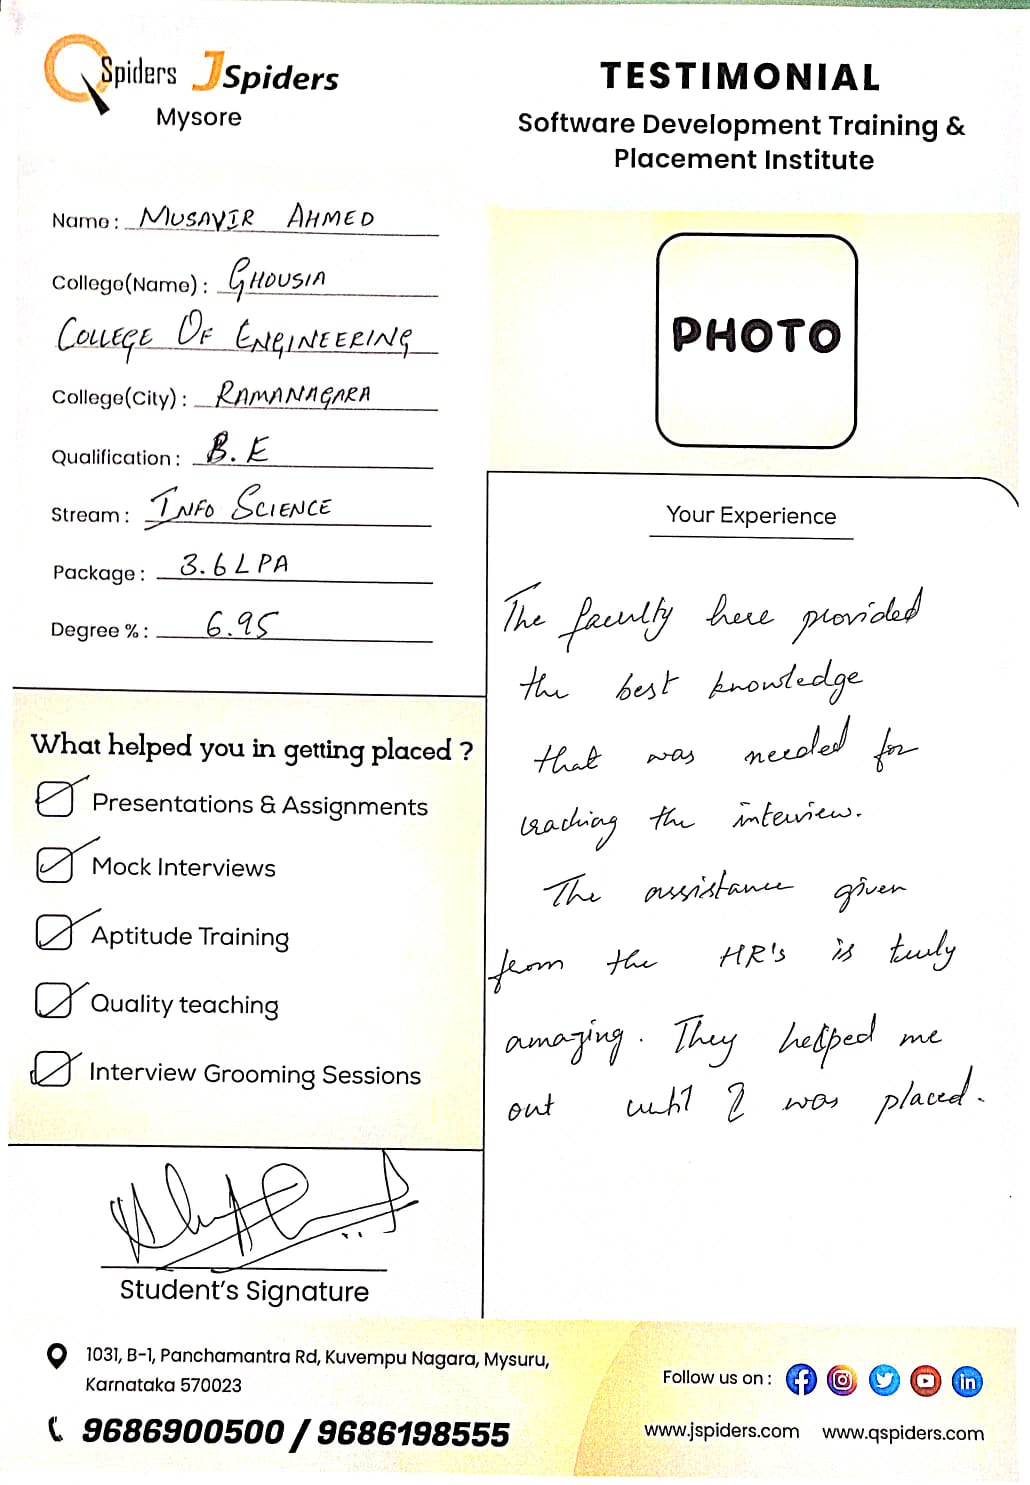 QSpiders JSpiders
Mysore
TESTIMONIAL
Software Development Training &
Placement Institute
Name : MUSAVIR AHMED
College(Name) : GHOUSIA
COLLEGE OF ENGINEERING
College(City) : RAMANAGARA
Qualification : B.E
Stream : INFO SCIENCE
Package : 3.6 LPA
Degree % : 6.95
PHOTO
What helped you in getting placed ?
Presentations & Assignments
Mock Interviews
Aptitude Training
Quality teaching
Interview Grooming Sessions
Student's Signature
Your Experience
The faculty here provided
the best knowledge
that was needed for
the interview.
The assistance given
from the HR's is truly
amazing. They helped me
out until I was placed.
1031, B-1, Panchamantra Rd, Kuvempu Nagara, Mysuru,
Karnataka 570023
9686900500 / 9686198555
Follow us on :
www.jspiders.com www.qspiders.com